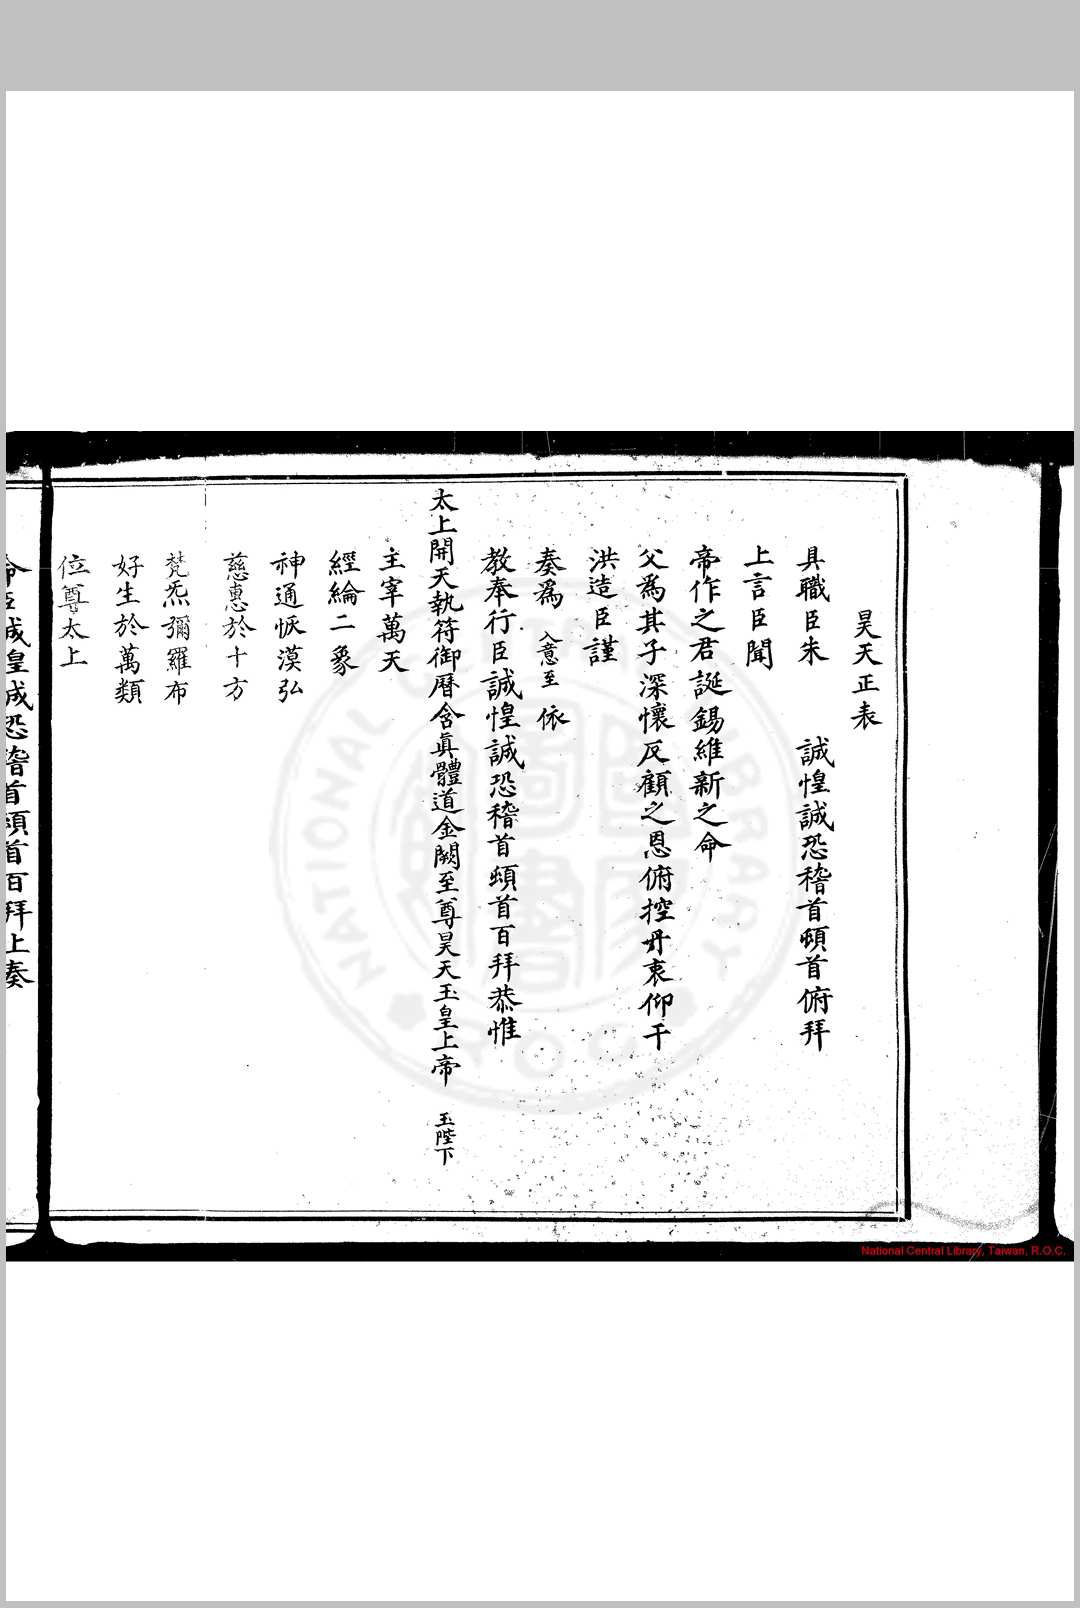 昊天正表
具職臣朱　誠惶誠恐稽首頓首俯拜
上言臣聞
帝作之君誕錫維新之命
父為其子深懷反顧之恩俯控丹衷仰干
洪造臣謹
奏為 入意至 依
教奉行臣誠惶誠恐稽首頓首百拜恭惟
太上開天執符御曆含真體道金闕至尊昊天玉皇上帝 玉陛下
主宰萬天
經綸二象
神通恢漠弘
慈惠於十方
梵炁彌羅布
好生於萬類
位尊太上
命臣誠惶誠恐稽首頓首百拜上奏
NATIONAL CENTRAL LIBRARY
R.O.C.
National Central Library, Taiwan, R.O.C.